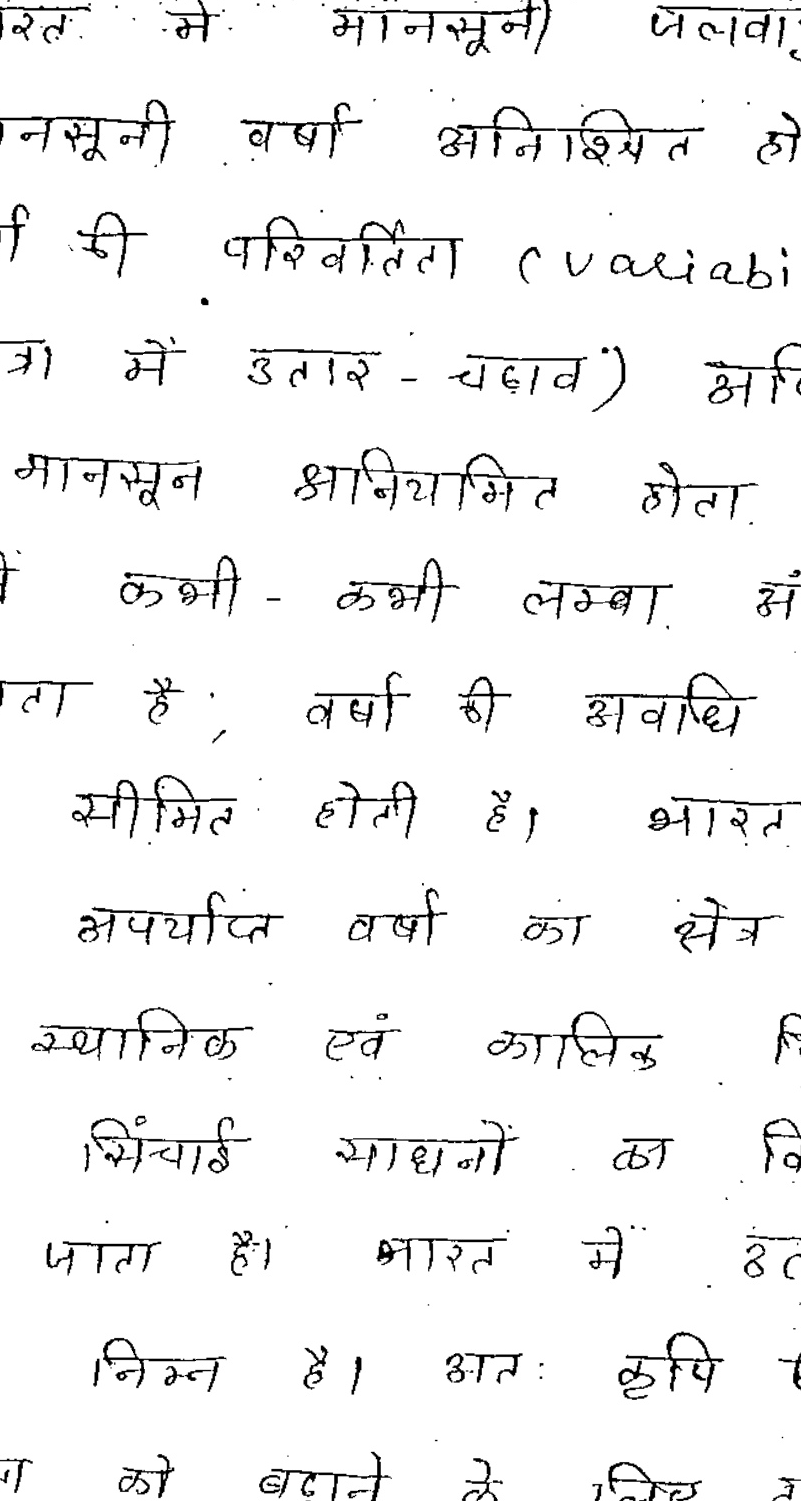 में मानसूनी
वर्षा अनिश्चित
की परिवर्तिता
में उतार - चढ़ाव)
मानसून अनियमित होता
कभी - कभी लम्बा
है; वर्षा की अवधि
सीमित होती है। भारत
अपर्याप्त वर्षा का क्षेत्र
स्थानिक एवं कालिक
सिंचाई साधनों का
जाता है। भारत में
निम्न है। अतः कृषि
को बढ़ाने के लिए